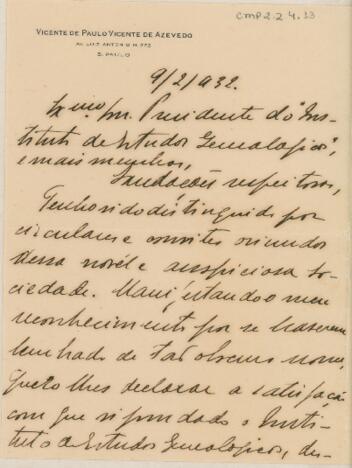 CMP 2.2.4.33
VICENTE DE PAULO VICENTE DE AZEVEDO
AV. LUIS ANTONIO N.
S. PAULO
9/2/932.
Exmo. Snr. Presidente do "Ins-
tituto de Estudos Genealogicos",
e mais membros,
Saudações respeitosas,
Tenho sido distinguido por
circulares e convites oriundos
dessa novel e auspiciosa so-
ciedade. Manifestando o meu
reconhecimento por se haverem
lembrado de tão obscuro nome,
quero lhes declarar a satisfação
com que vi fundado o Insti-
tuto de Estudos Genealogicos, des-